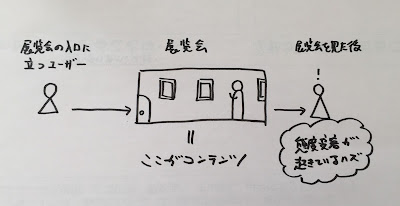 展覧会の入口に
立つユーザー
展覧会
展覧会を見た後
!
||
ここがコンテンツ!
態度変容が
起きているハズ